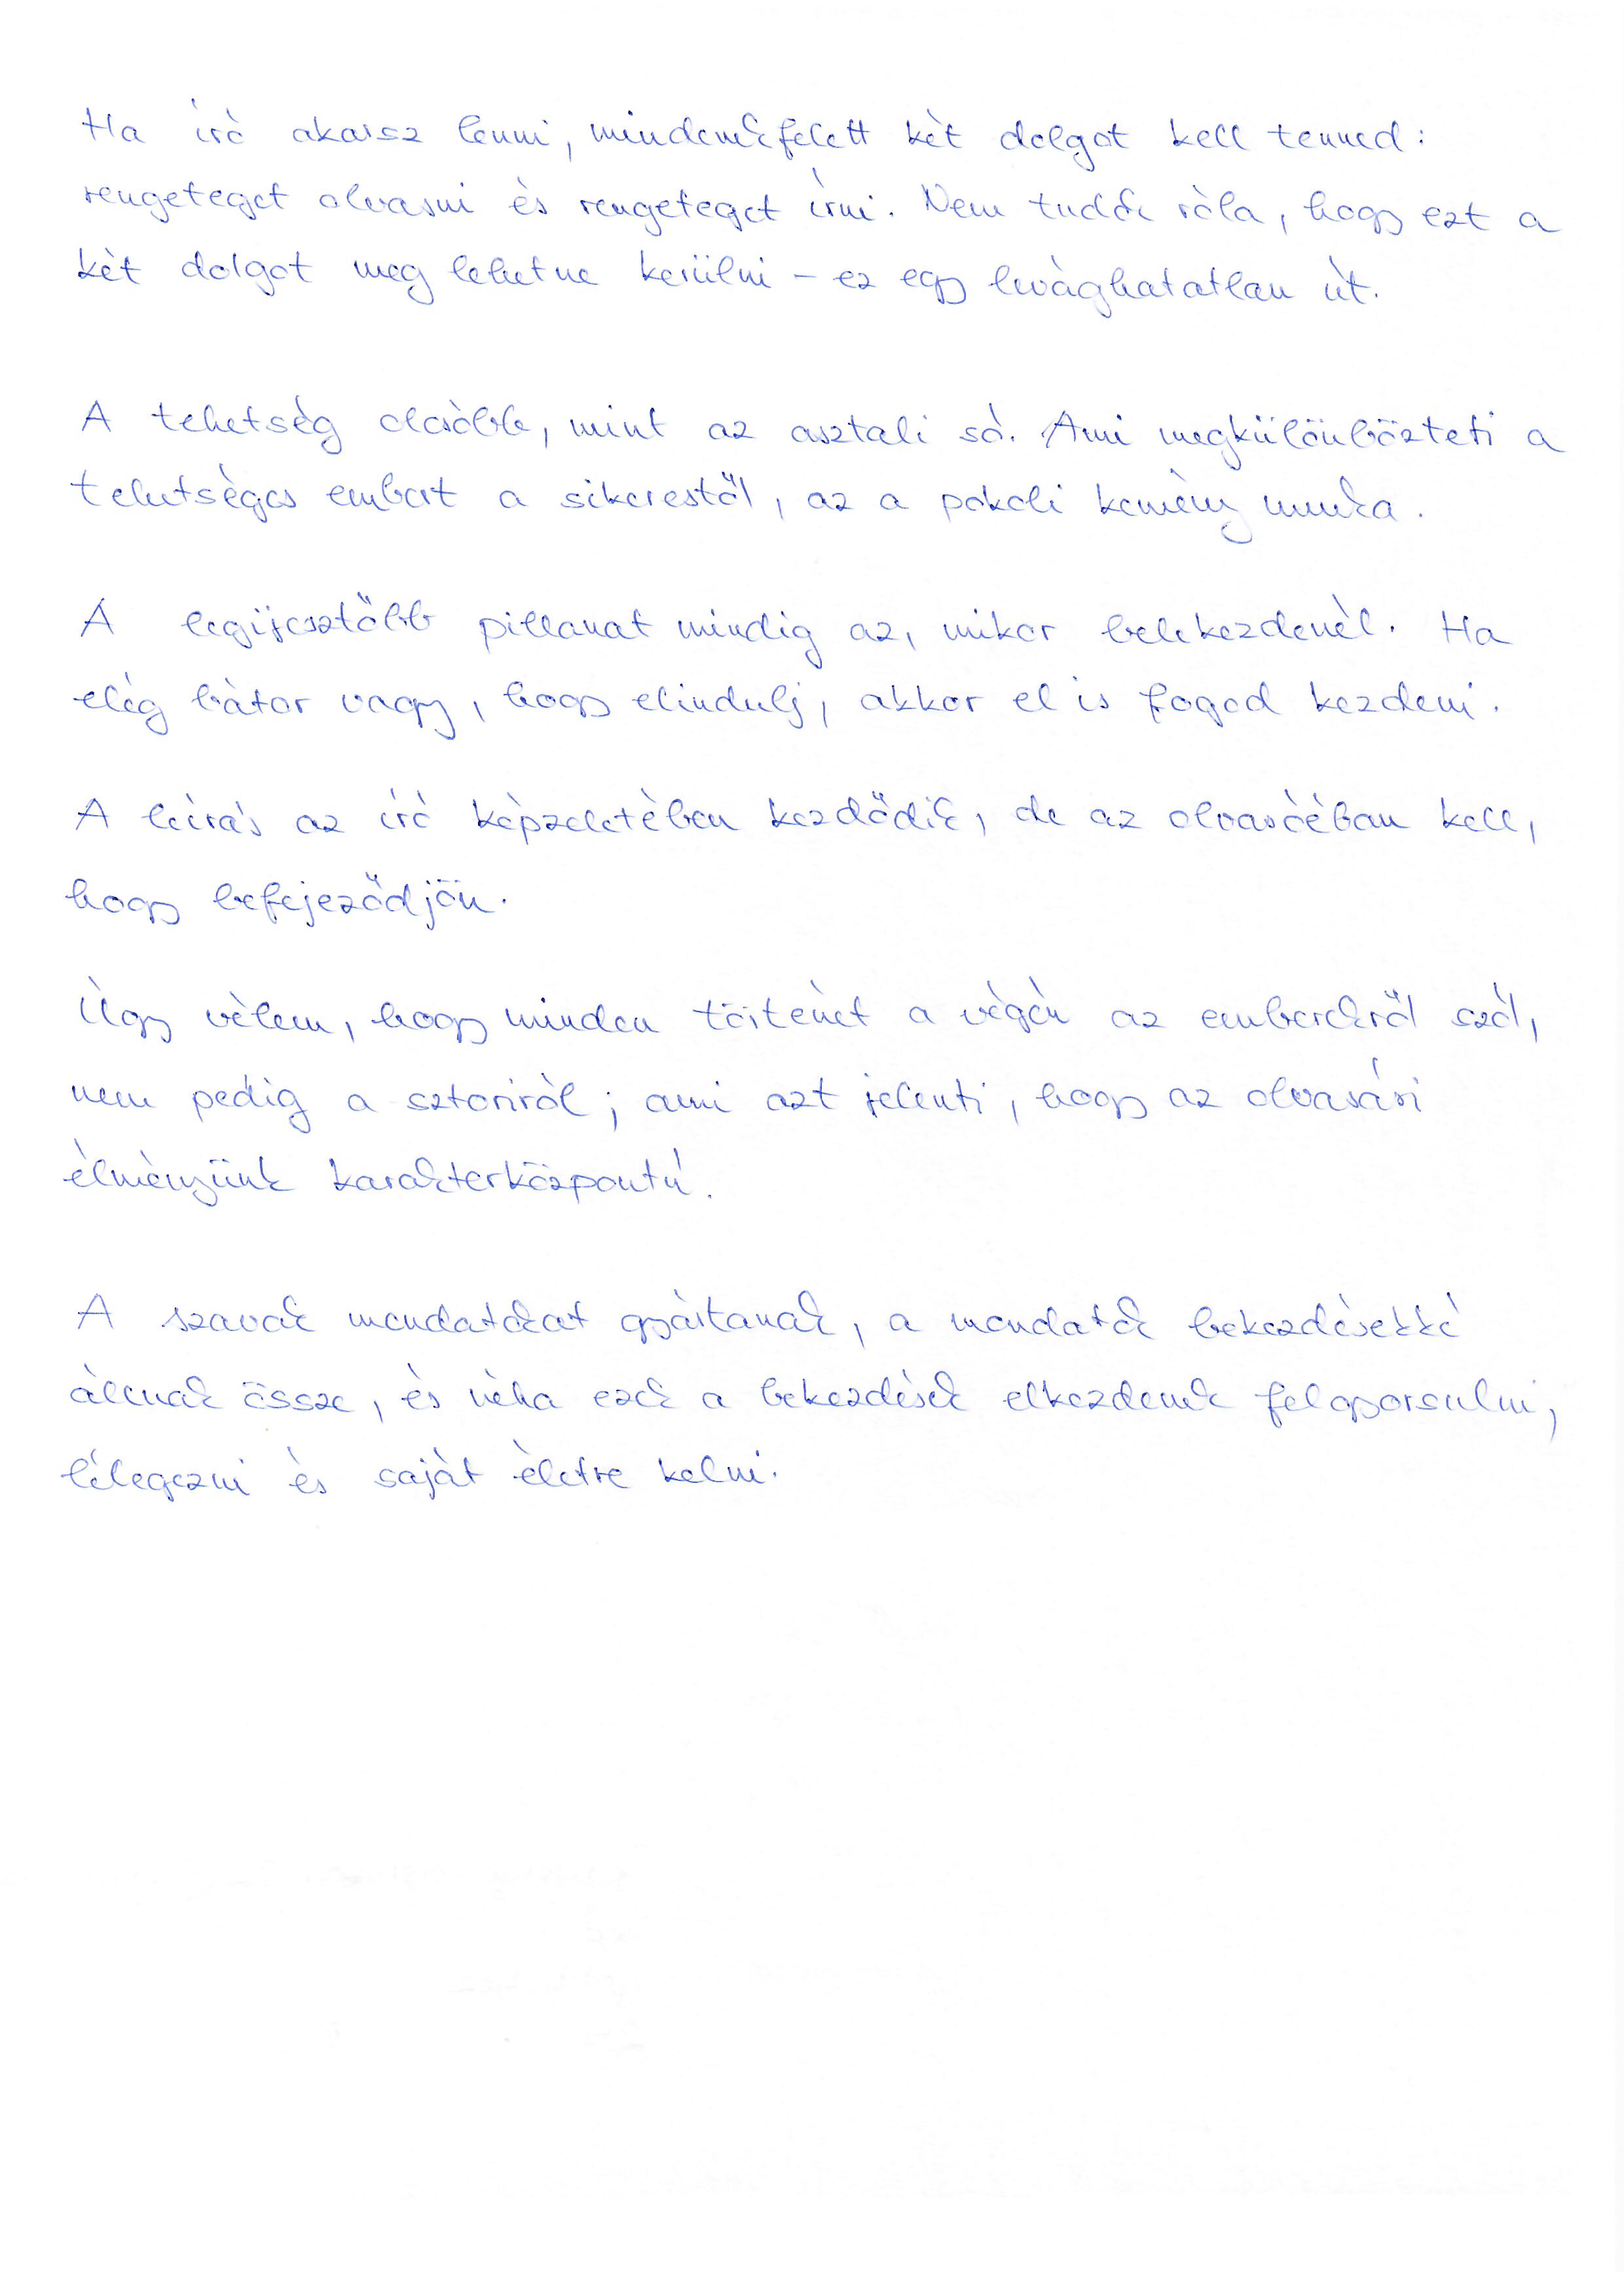 Ha író akarsz lenni, mindenekfelett két dolgot kell tenned:
rengeteget olvasni és rengeteget írni. Nem tudok róla, hogy ezt a
két dolgot meg lehetne kerülni – ez egy levághatatlan út.
A tehetség olcsóbb, mint az asztali só. Ami megkülönbözteti a
tehetséges embert a sikerestől, az a pokoli kemény munka.
A legijesztőbb pillanat mindig az, mikor belekezdenél. Ha
elég bátor vagy, hogy elindulj, akkor el is fogod kezdeni.
A leírás az író képzeletében kezdődik, de az olvasóéban kell,
hogy befejeződjön.
Úgy vélem, hogy minden történet a végén az emberekről szól,
nem pedig a sztoriról; ami azt jelenti, hogy az olvasási
élményünk karakterközpontú.
A szavak mondatokat gyártanak, a mondatok bekezdésekké
állnak össze, és néha ezek a bekezdések elkezdenek felgyorsulni,
lélegezni és saját életre kelni.